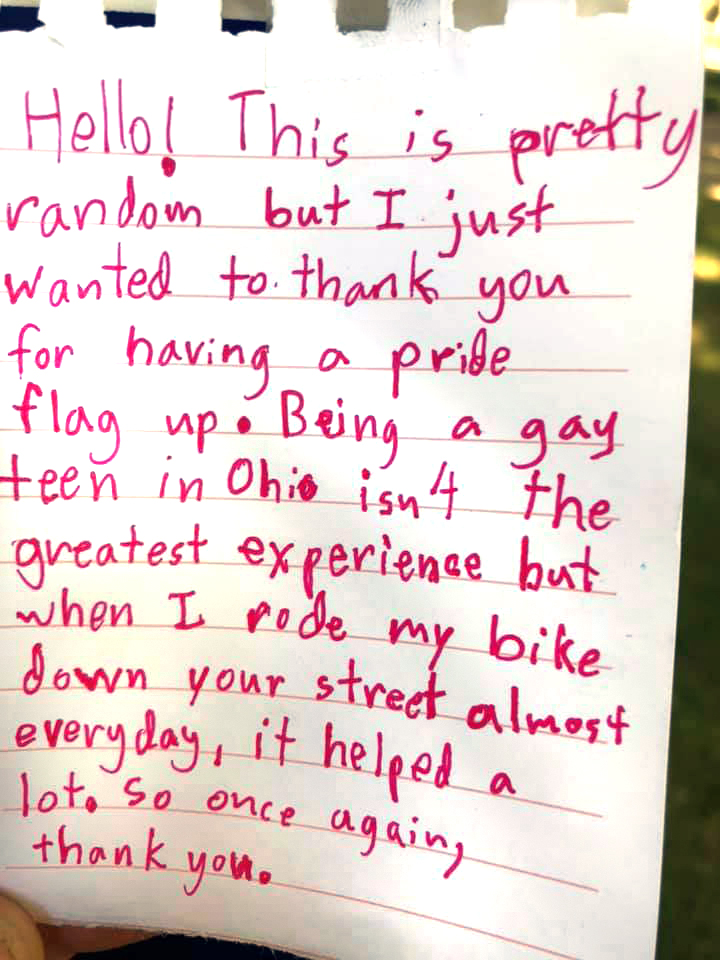 Hello! This is pretty
random but I just
wanted to thank you
for having a pride
flag up. Being a gay
teen in Ohio isn't the
greatest experience but
when I rode my bike
down your street almost
everyday, it helped a
lot. So once again,
thank you.